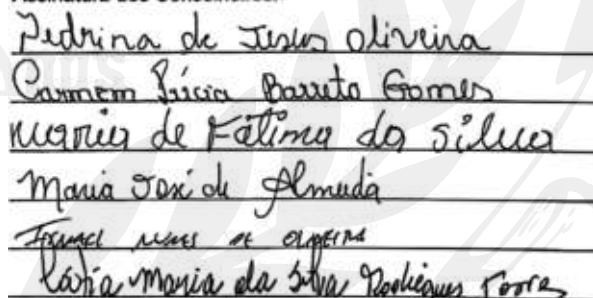 Assinatura dos Conselheiros:
Pedrina de Jesus Oliveira
Carmem Lúcia Barreto Gomes
Maria de Fátima da Silva
Maria José de Almeida
Nunes de Oliveira
Maria da Silva Rodrigues Torres